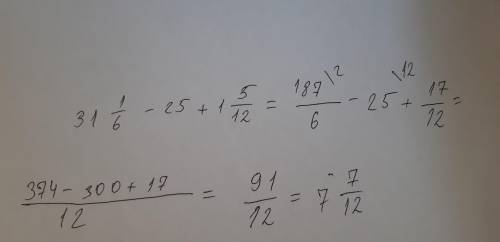 31 1/6 - 25 + 1 5/12 = 187\2/6 - 25\12 + 17/12 =
374 - 300 + 17/12 = 91/12 = 7 7/12